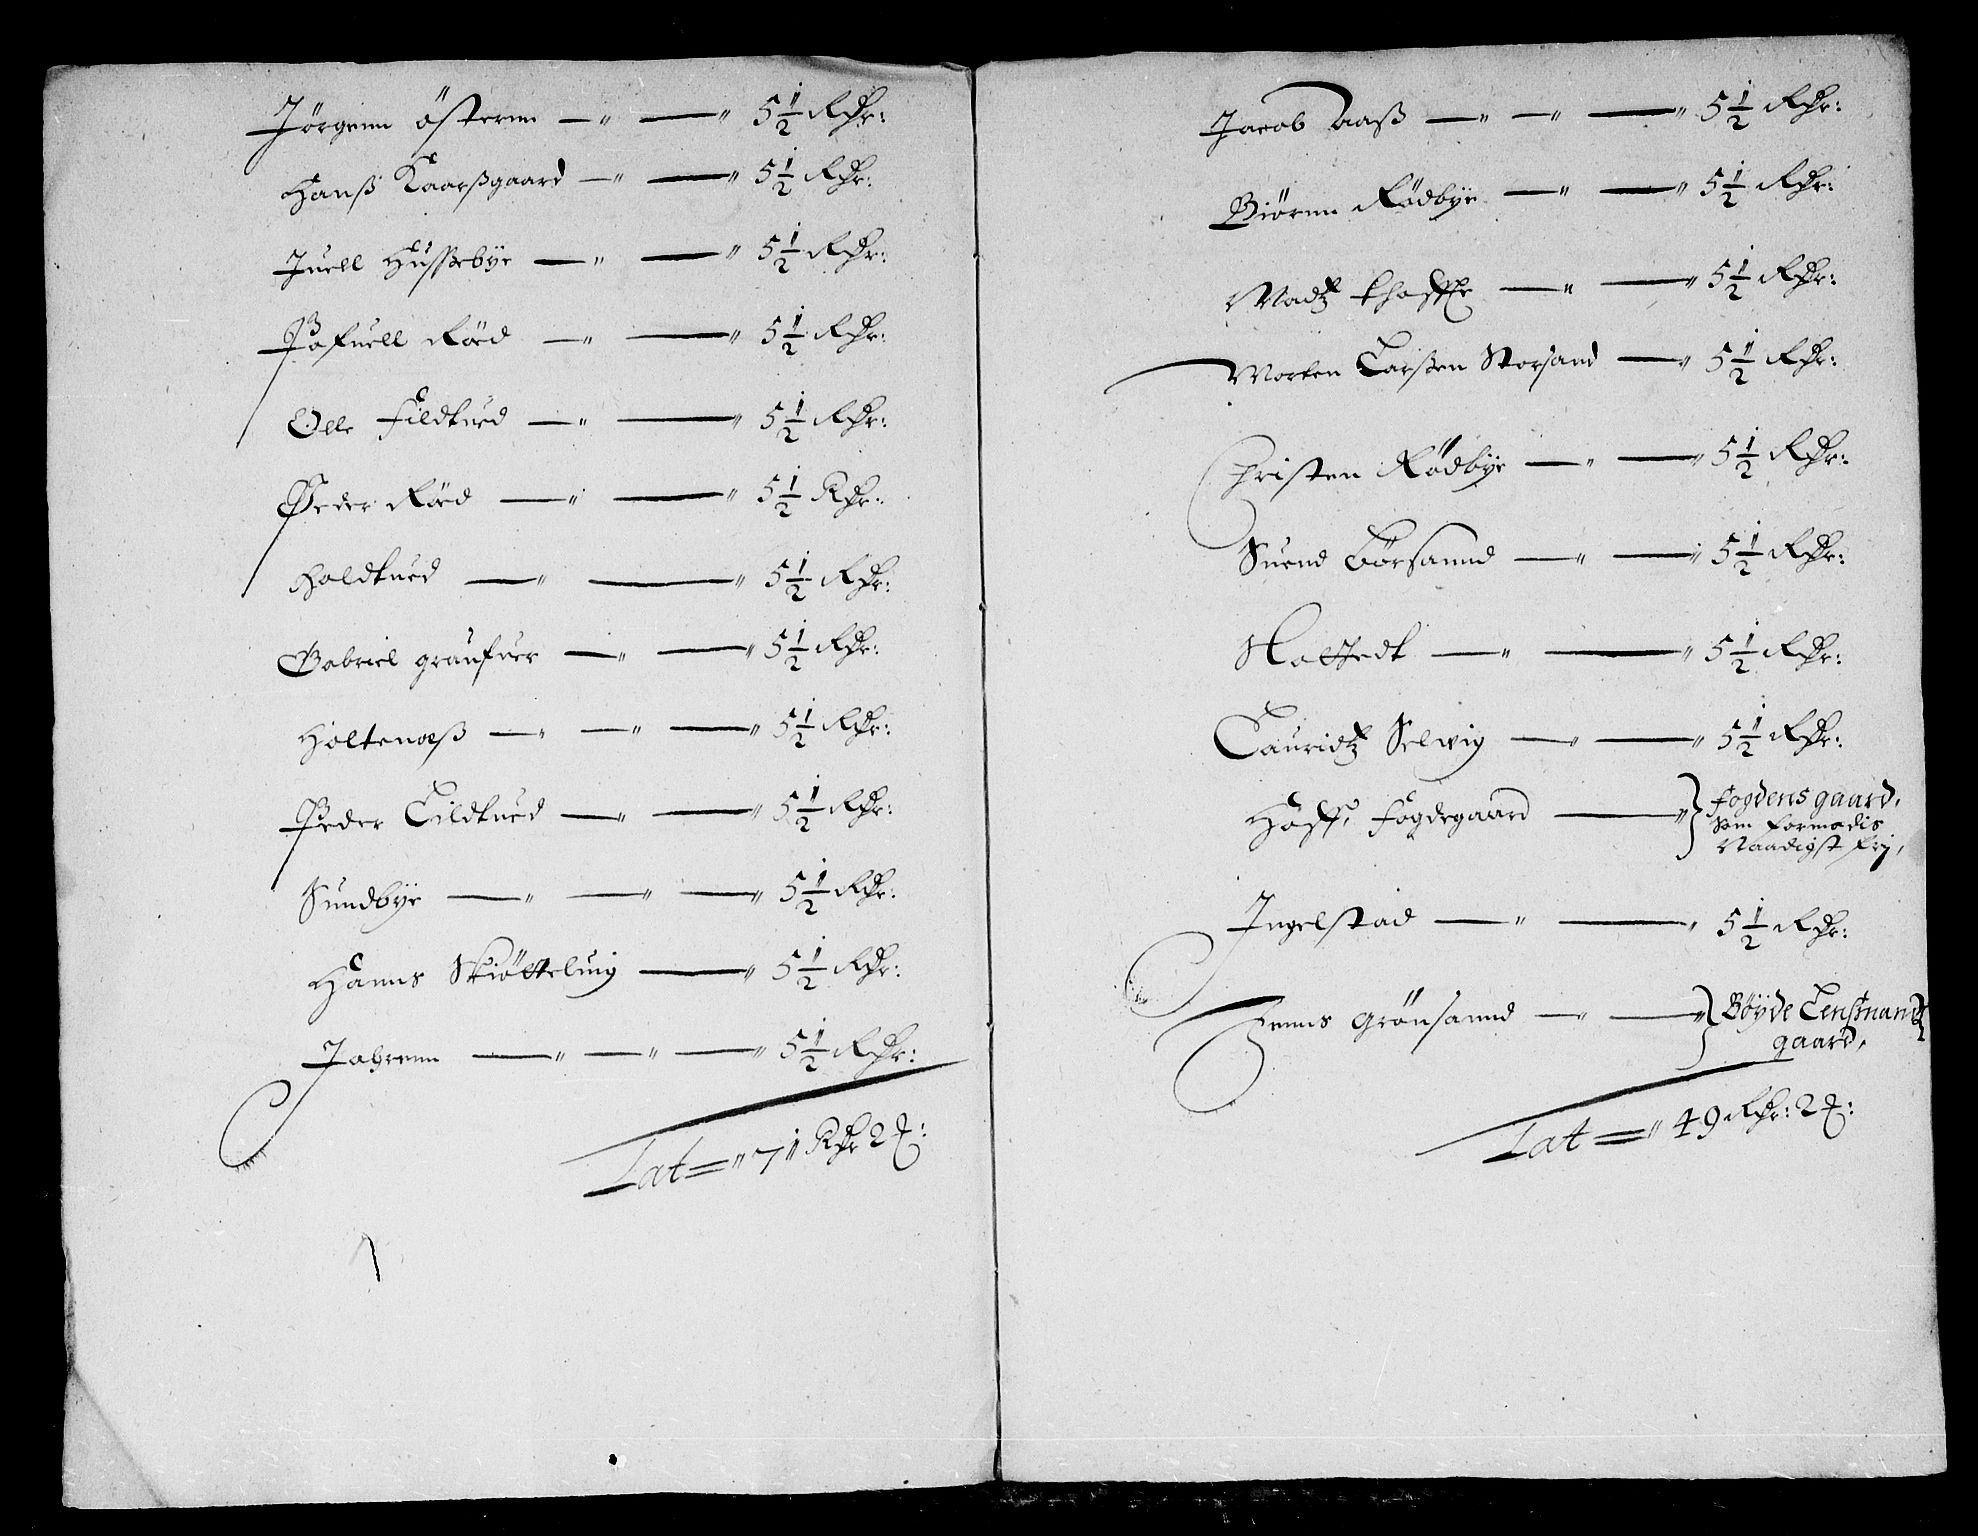 Jörgenn östernn — " — " 5½ Rdr:
Hanß Kaarßgaard — " — " 5½ Rdr:
Juell Hussebye — " — " 5½ Rdr:
Pofuell Röed — " — " 5½ Rdr:
Olle Fildtued — " — " 5½ Rdr:
Peder Röed — " — " 5½ Rdr:
Holdtued — " — " 5½ Rdr:
Gabriel graufuer — " — " 5½ Rdr:
Holtenæß — " — " — " 5½ Rdr:
Peder Tildtued — " — " 5½ Rdr:
Sundbye — " — " — " 5½ Rdr:
Hanns Skiötteluig — " 5½ Rdr:
Jahrenn — " — " — " 5½ Rdr:
Lat = " 71 Rdr 2 
Jacob aaß — " — " — " 5½ Rdr:
Biörnn Rödbye — " — " 5½ Rdr:
Madtz — " — " 5½ Rdr:
Morten Larßen Storsand — " 5½ Rdr:
Christen Rödbye — " — " 5½ Rdr:
Suend Börsannd — " — " 5½ Rdr:
Nostedt — " — " 5½ Rdr:
Lauridtz Selwig — " — " 5½ Rdr:
Hoff, Fogdegaard — " } Fogdens gaard,
Som formodis
Naadigst frj,
Ingelstad — " — " 5½ Rdr:
Jenns Grönsannd — " — " } Böyde Lenßmandtz
gaard,
Lat = " 49 Rdr: 2